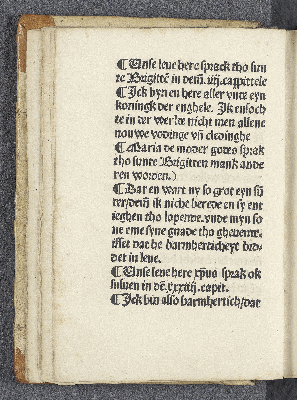 ¶ Unse leue here sprack tho sun
te Birgittẽ in dem̃. iiij. cappittele
¶ Ick byn en here aller vnde eyn
koningk der enghele. Ik ensoch
te in der werlt nicht men allene
nouwe vodinge vñ cledinghe
¶ Maria de moder godes sprak
tho sunte Birgitten mank ande
ren worden.
¶ Dar en wart ny so grot eyn sũ
ik niche berede en sy ent
ieghen tho lopende. vnde myn so
ne eme syne gnade tho gheuende.
isset dat he barmherticheyt bid⸗
det in leue.
¶ Unse leue here xp̃us sprak ok
suluen in dẽ. xxxiiij. capit.
¶ Ick bin also barmhertich/dat